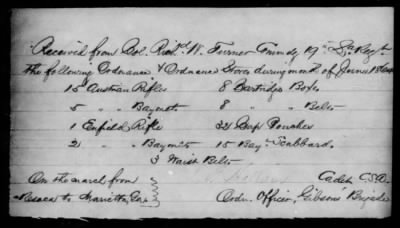 Received from Col. Rich'd W. Turner Comm'dg 19th La Reg't
the following Ordnance & Ordnance Stores during month of
15 Austrian Rifles 8 Cartridge Boxes
5 " Bayonets 8 " Belts
1 Enfield Rifle 32 Cap Pouches
2 " Bayonets 15 Bay. Scabbards
3 Waist Belts
On the march from
Resaca to Marietta, Geo. Cadet CSA.
Ordn. Officer, Gibson's Brigade